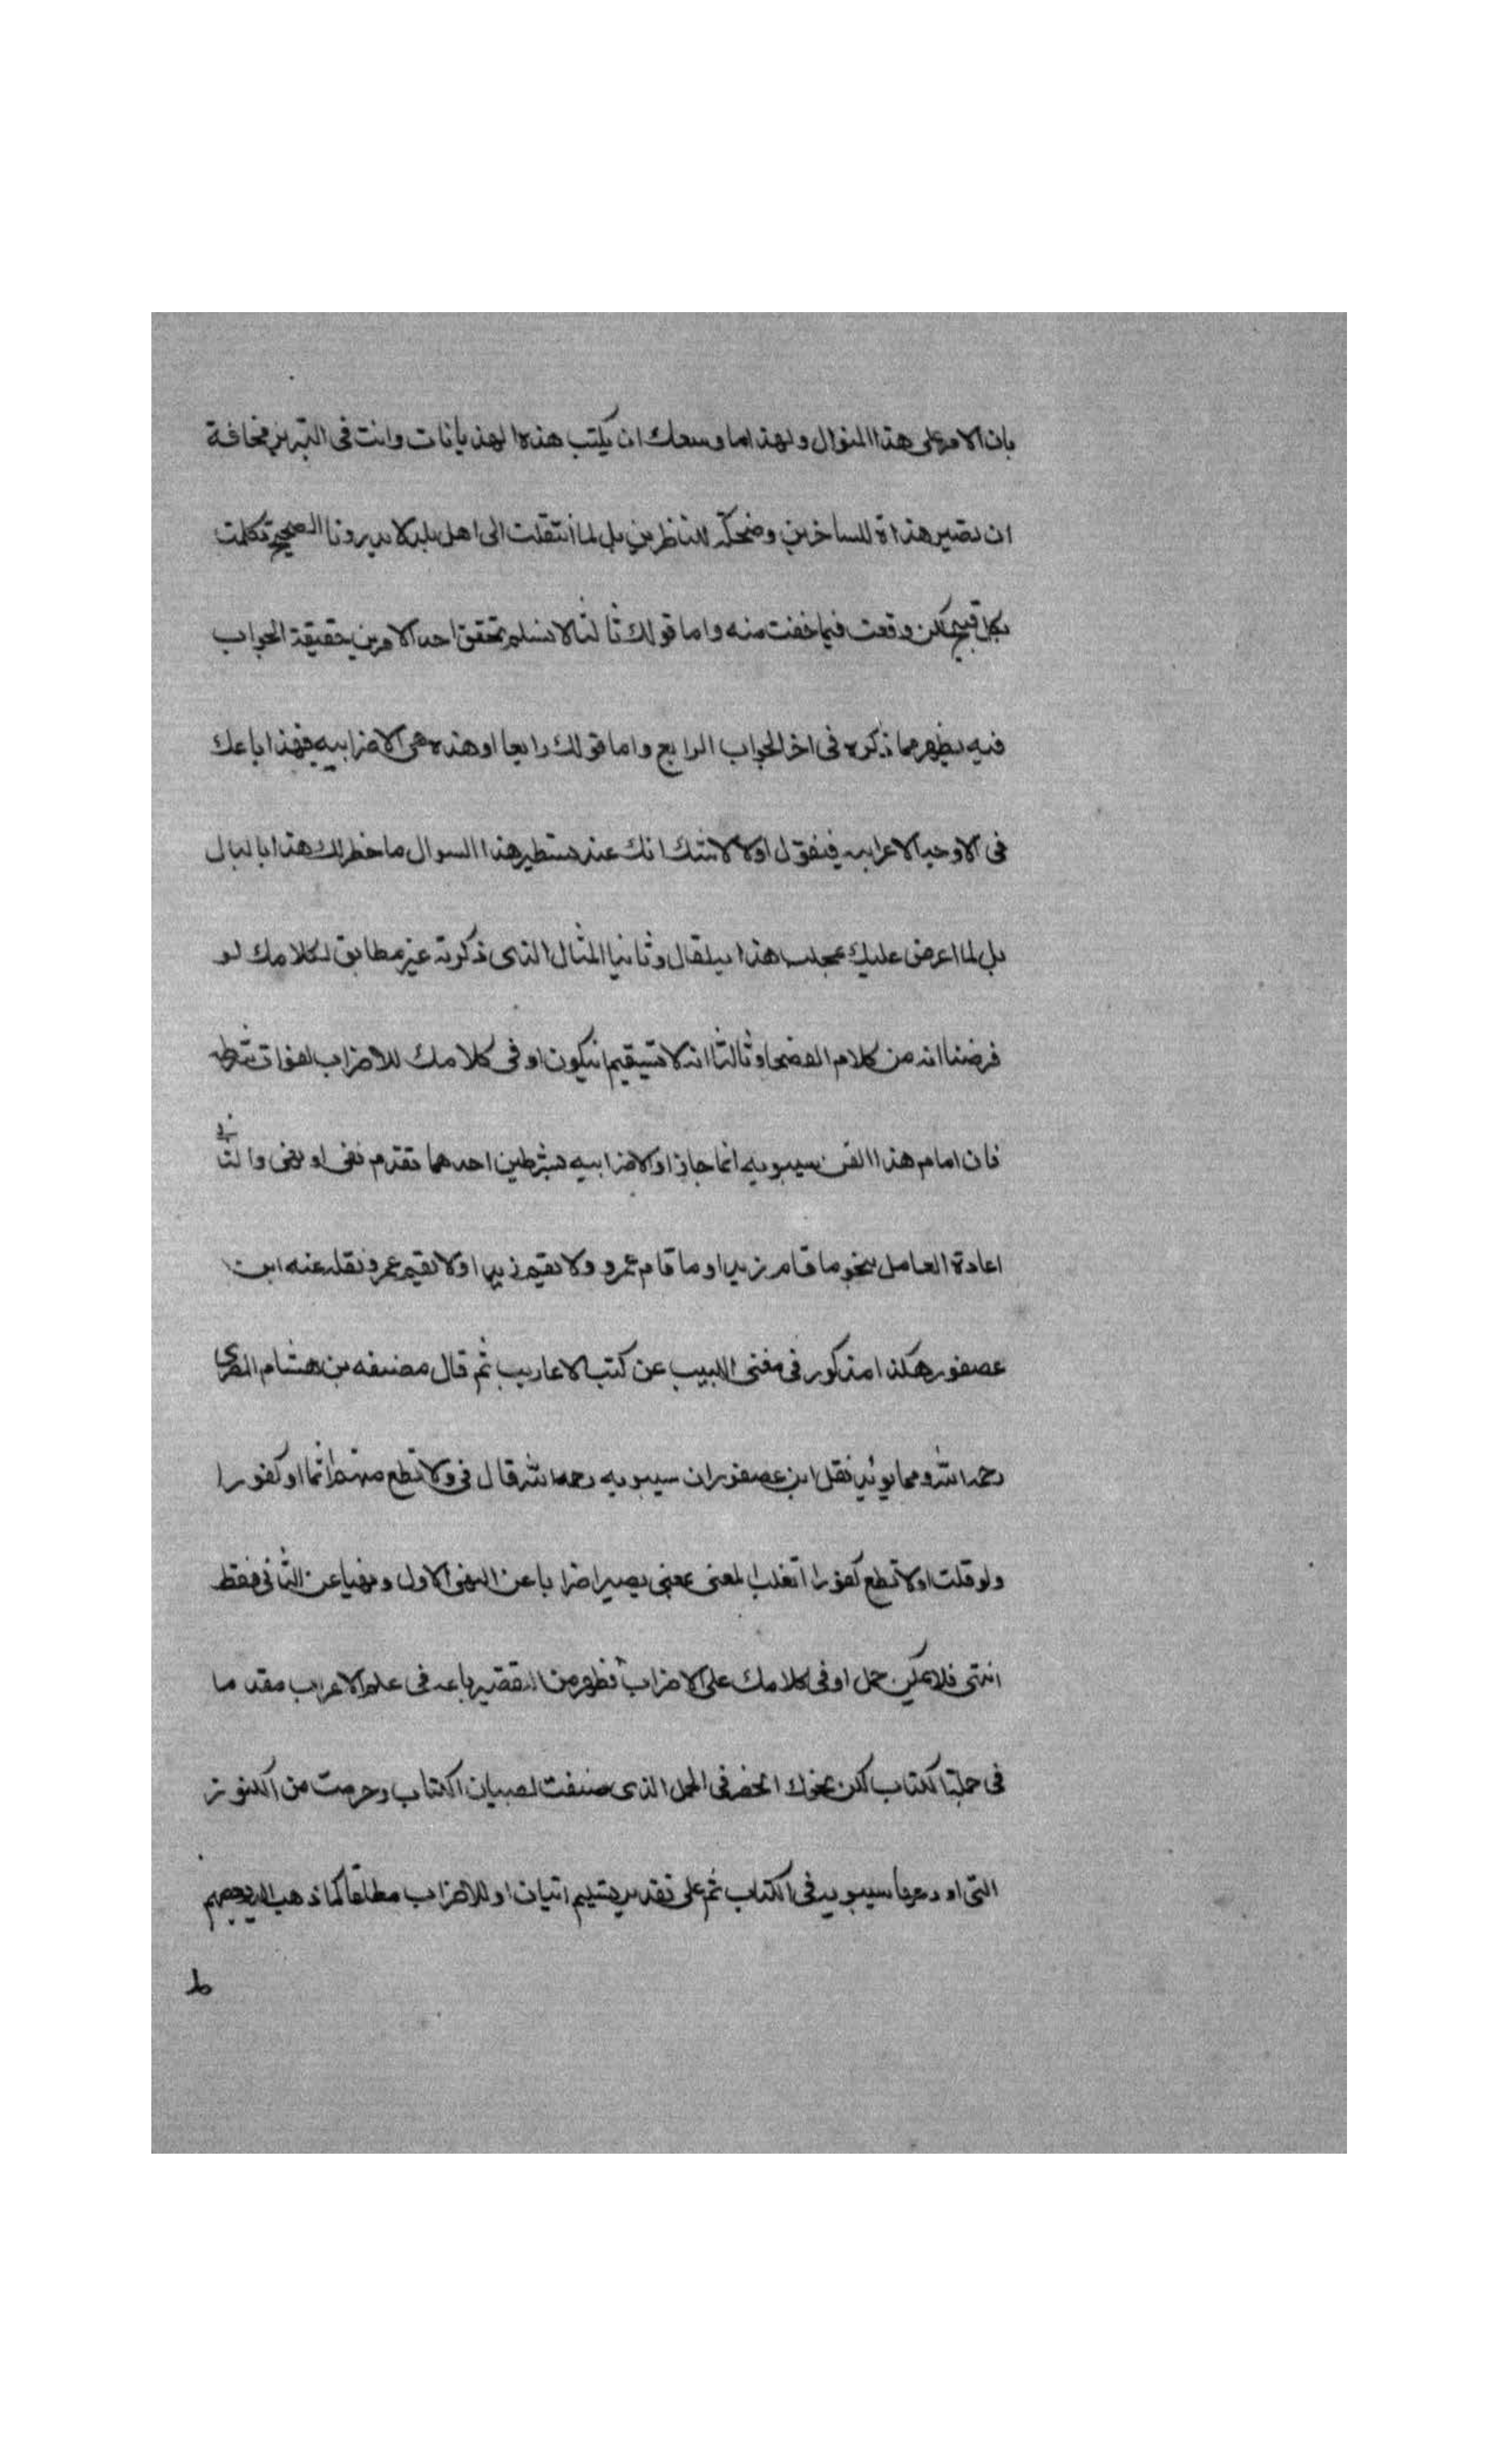 بان الامر على هذا المنوال ولهذا ما وسعك ان يكتب هذه الهذيانات وانت فى التبريز مخافة
ان تصير هذاة للساخرين وضحكة للناظرين بل لما انتقلت الى اهل بلد لا يدرونا الصحيح تكلمت
بكل قبيح لكن وقعت فيما خفت منه واما قولك ثالثا لا نسلم تحقق احد الامرين حقيقة الجواب
فيه يظهر مما ذكره فى اخر الجواب الرابع واما قولك رابعا او هذه هى الاضرابيه فهذا باعك
فى الاوجه الاعرابيه فنقول اولا لا شك انك عند تسطير هذا السوال ما خطر لك هذا بالبال
بل لما اعرض عليك هذا يقال وثانيا المثال الذى ذكرته غير مطابق لكلامك لو
فرضنا انه من كلام الفصحا وثالثا انه لا تستقيم انيكون او فى كلامك للاضراب لفوات شرطه
فان امام هذا الفن سيبويه انما جاز او الاضرابيه بشرطين احدهما تقدم نفى او نهى والثانى
اعادة العامل نحو ما قام زيد او ما قام عمرو ولا يقيم زيد او لا يقيم عمرو نقله عنه ابن
عصفور هكذا مذكور فى مغنى اللبيب عن كتب الاعاريب ثم قال مصنفه بن هشام المصرى
رحمه الله ومما يوئيد نقل ابن عصفور ان سيبويه رحمه الله قال فى ولا تطع منهم اثما او كفورا
ولو قلت او لا تطع كفورا انقلب المعنى يعنى يصير اضرابا عن النهى الاول ونهيا عن الثانى فقط
انتهى فلا يمكن حمل او فى كلامك على الاضراب فظهر من التقصير باعه فى علم الاعراب مقدما
فى جملة الكتاب لكن نحوك انحصر فى الجمل الذى صنفت لصبيان الكتاب وحرمت من الكنوز
التى اودعها سيبويه فى الكتاب ثم على تقدير تسليم اتيان او للاضراب مطلقا كما ذهب اليه بعضهم
ط